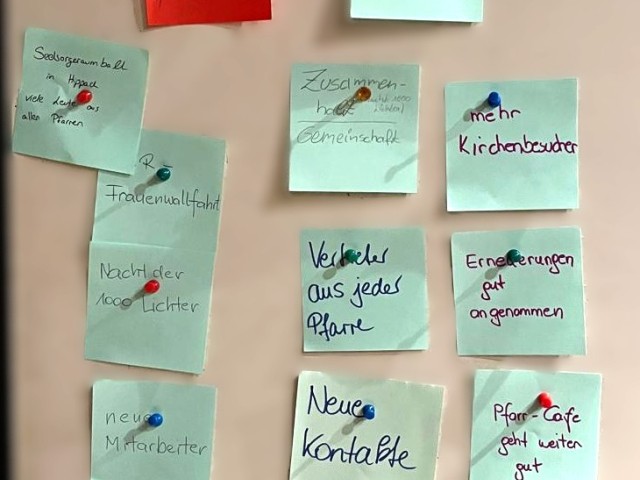 Seelsorgeraumball
in Hippach
viele Leute aus
allen Pfarren
R-
Frauenwallfahrt
Nacht der
1000 Lichter
neue
Mitarbeiter
Zusammen-
halt
Gemeinschaft
Vertreter
aus jeder
Pfarre
Neue
Kontakte
mehr
Kirchenbesucher
Erneuerungen
gut
angenommen
Pfarr-Cafe
geht weiter
gut